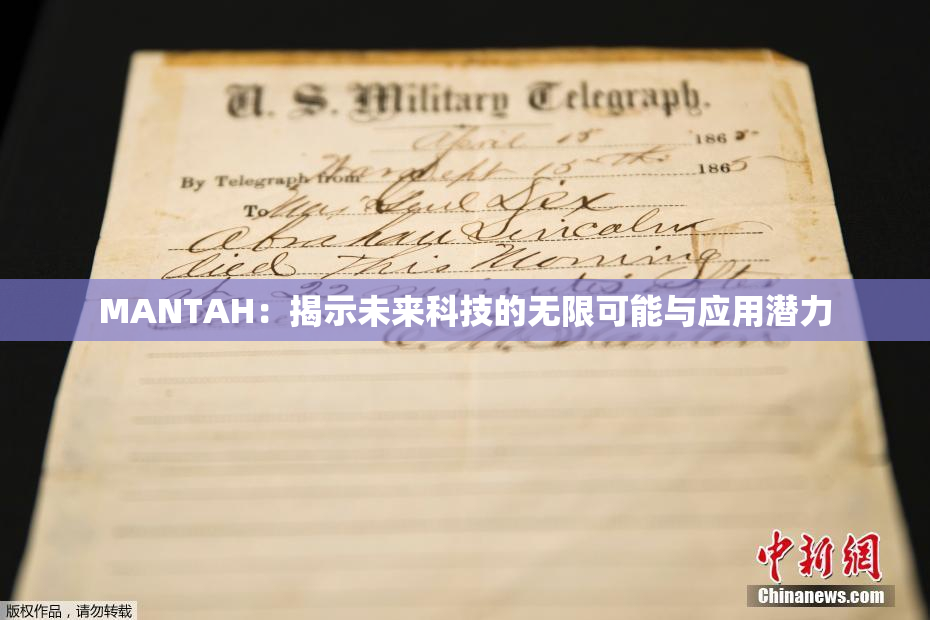 U. S. Military Telegraph.
April 15 1865
By Telegraph from War Dept 15th 1865
To Maj Genl Dix
Abraham Lincoln
died This Morning
22 minutes after
MANTAH：揭示未来科技的无限可能与应用潜力
E. M. Stanton
中新网
Chinanews.com
版权作品，请勿转载